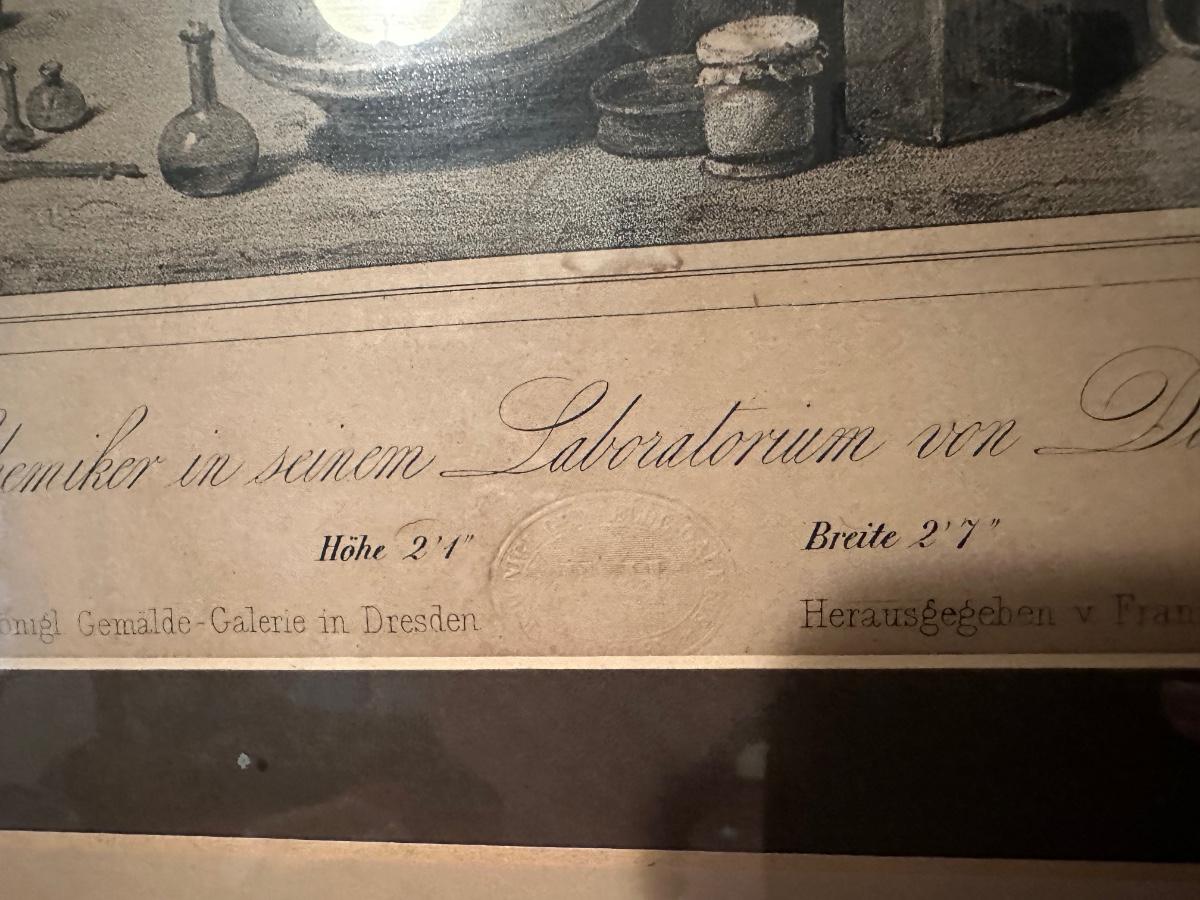 hemiker in seinem Laboratorium von D
Höhe 2'1" Breite 2'7"
önigl Gemälde-Galerie in Dresden Herausgegeben v Fran